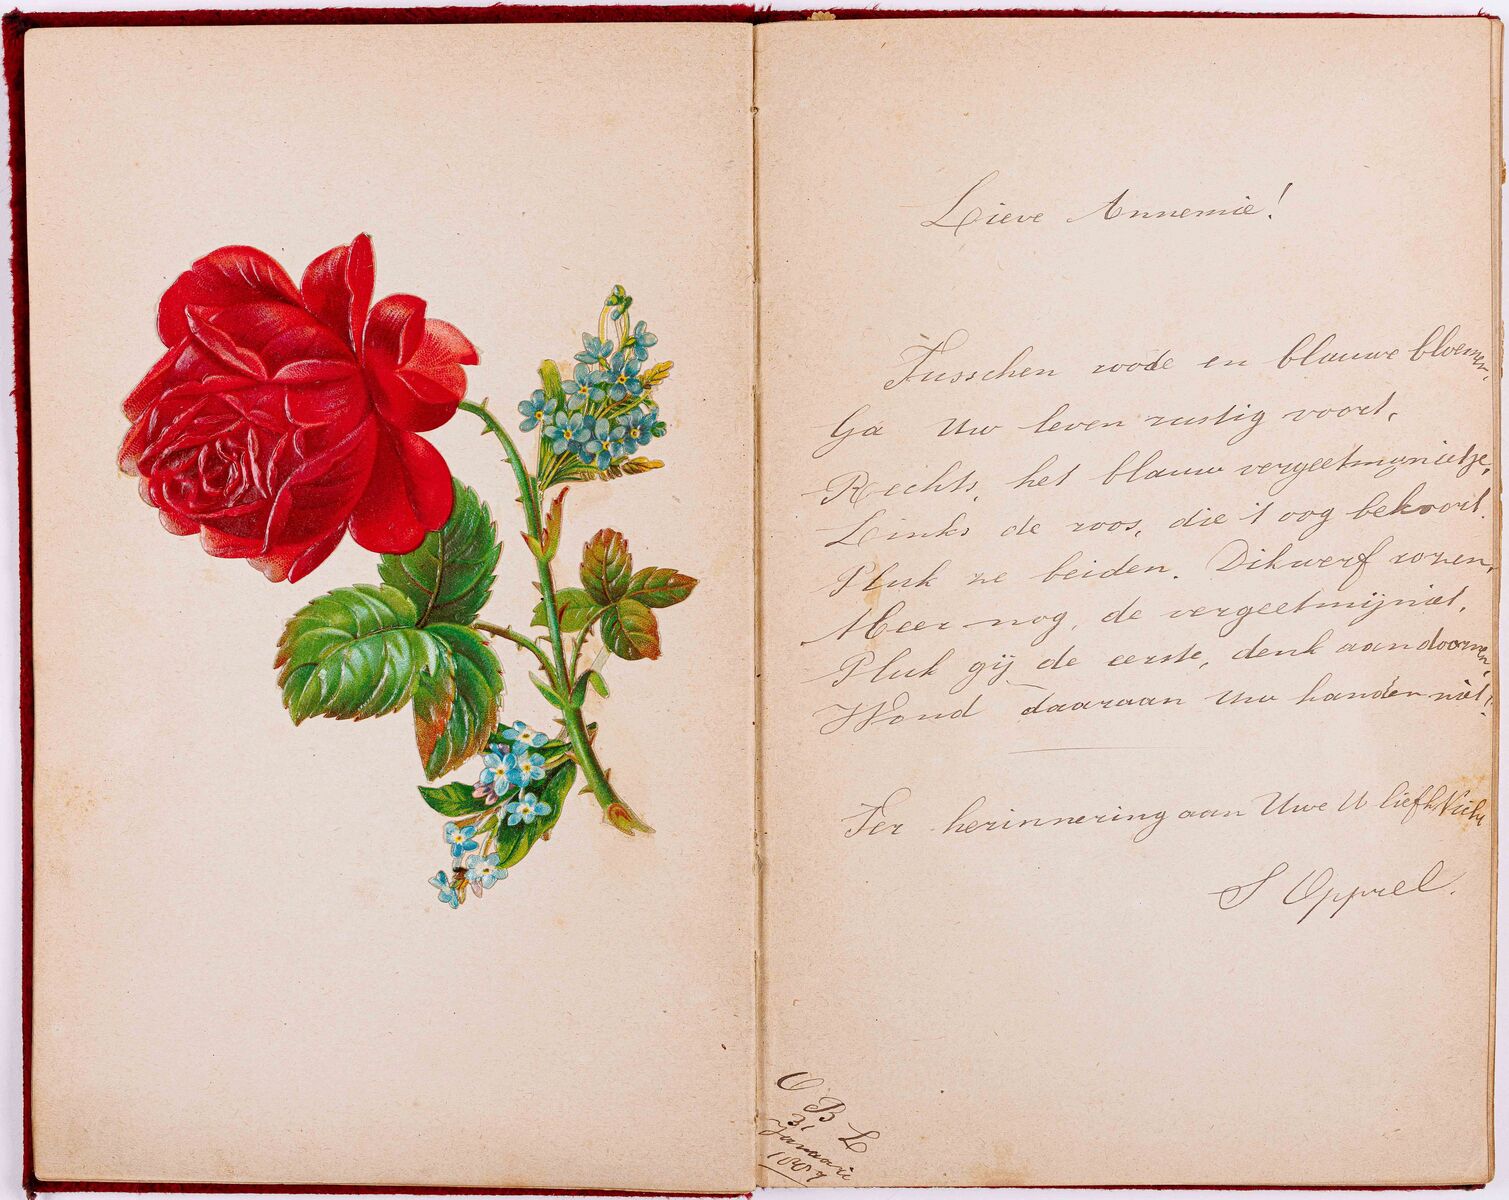 Lieve Annemie!
Tusschen roode en blauwe bloemen,
Ga Uw leven rustig voort,
Rechts, het blauw vergeetmynietje,
Links de roos, die 't oog bekoort.
Pluk ze beiden. Dikwerf rozen,
Meer nog, de vergeetmijniet,
Pluk gij de eerste, denk aan doornen,
Wond daaraan Uw handen niet!
Ter herinnering aan Uwe U liefh. Nicht
S Opprel.
O B L
31
Januarie